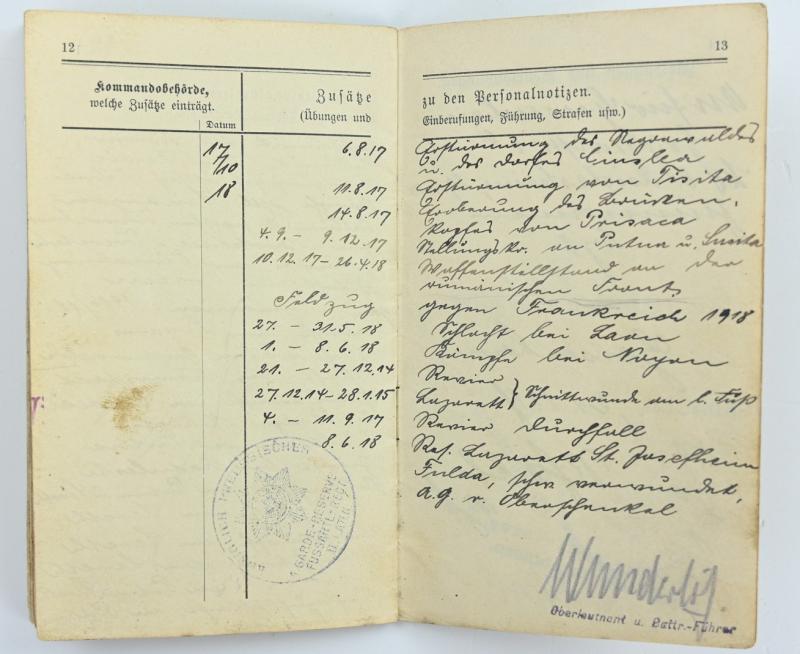 12
Kommandobehörde,
welche Zusätze einträgt.
Datum
Zusätze
(Übungen und
17/10 18
6.8.17
11.8.17
14.8.17
4.9. – 9.12.17
10.12.17 – 26.4.18
Feldzug
27. – 31.5.18
1. – 8.6.18
21. – 27.12.14
27.12.14 – 28.1.15
4. – 11.9.17
8.6.18
GARDE-RESERVE
FUSSART.-REGT
13
zu den Personalnotizen.
Einberufungen, Führung, Strafen usw.)
Erstürmung des
u. des Dorfes
Erstürmung von Tisita
Eroberung des Brücken-
kopfes von Prisaca
Stellungskr. an Putna u. Susita
Waffenstillstand an der
rumänischen Front
gegen Frankreich 1918
Schlacht bei Laon
Kämpfe bei Noyon
Revier
Lazarett } Schnittwunde am l. Fuß
Revier Durchfall
Res. Lazarett St. Josefheim
Fulda, schw. verwundet,
A.G. r. Oberschenkel
Wunderlich
Oberleutnant u. Battr.-Führer